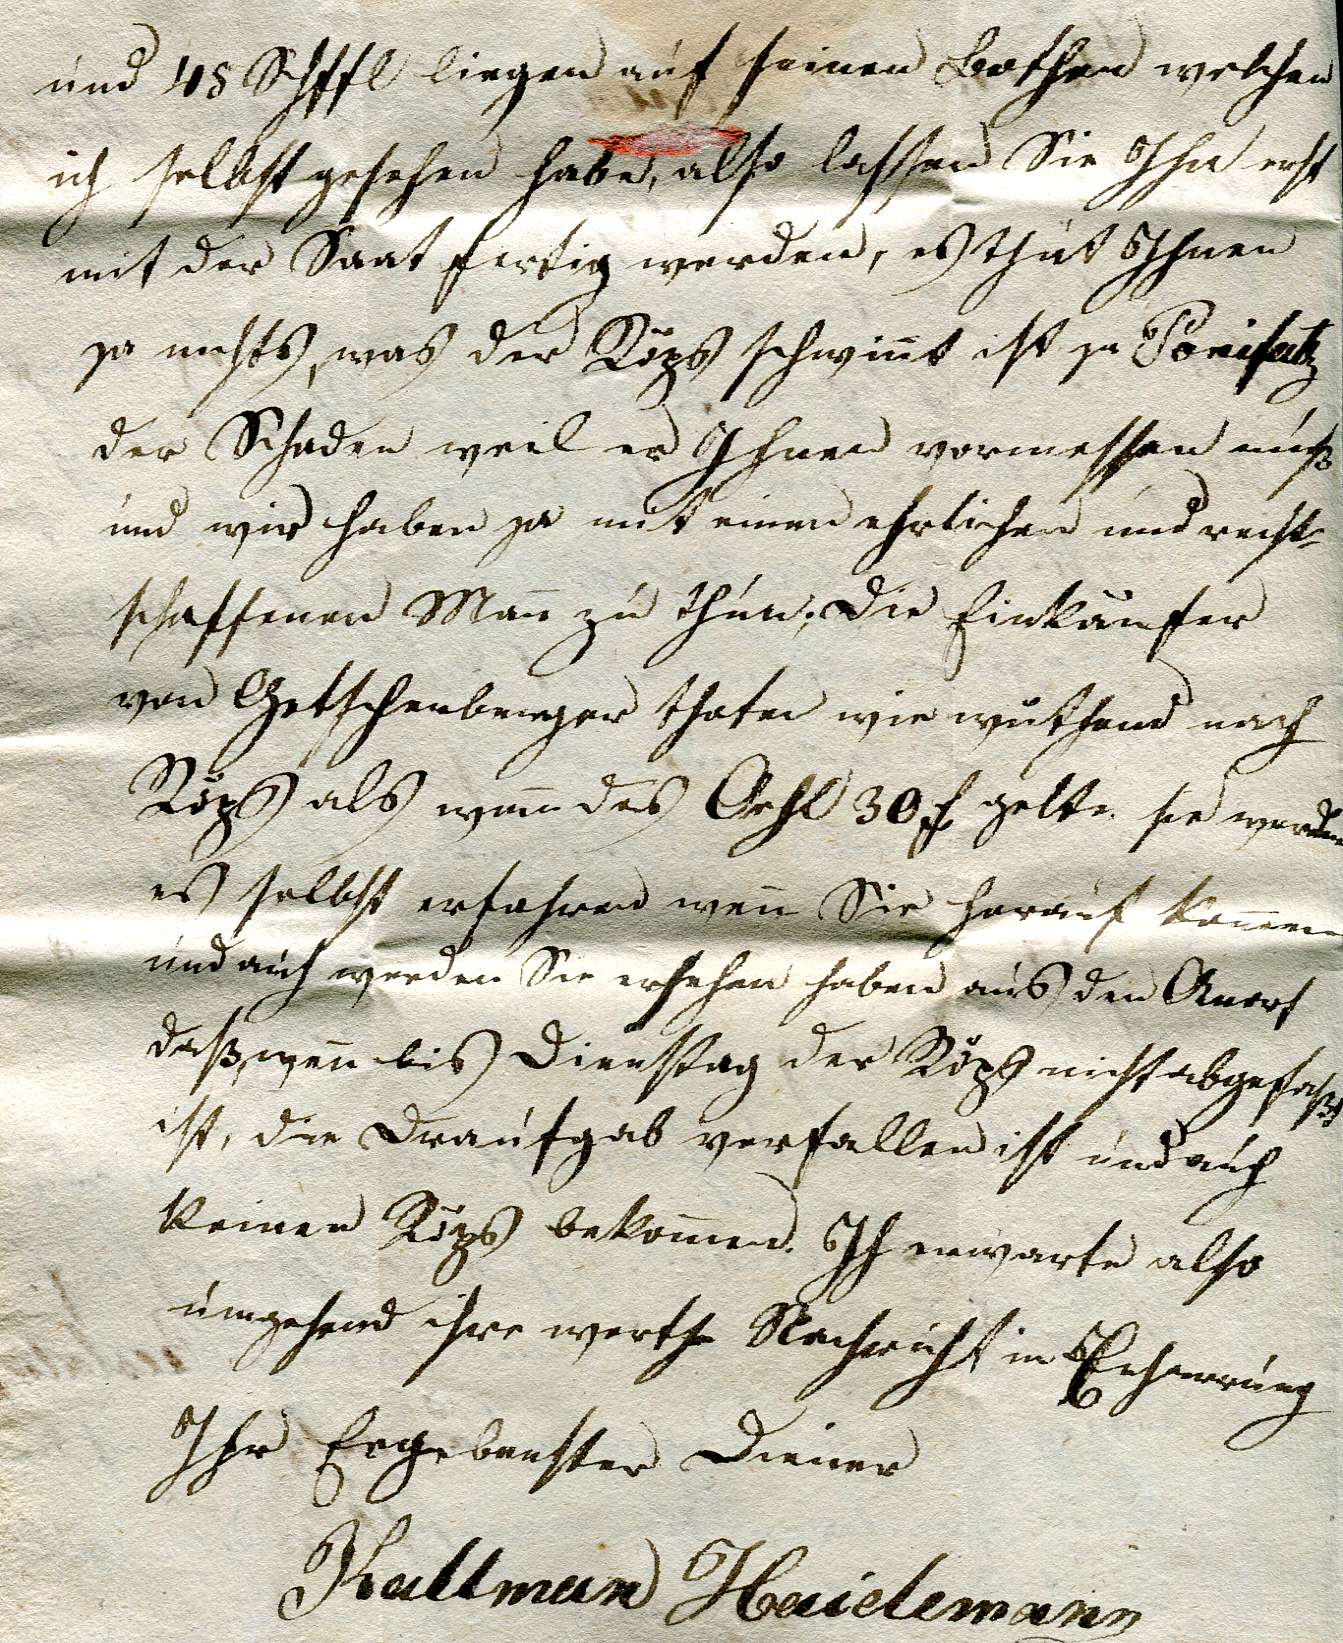 und 48 Schffl liegen auf seinen Bothen welchen
ich selbst gesehen habe, also lassen Sie Ihn erst
mit der Saat fertig werden, es thut Ihnen
ja nichts, was der Röps schwinnt ist ja
der Schaden weil er Ihnen vormessen muß
und wir haben ja mit einen ehrlichen und recht-
schaffenen Mann zu thun; die Einkäufer
von Getschenberger thaten wie wüthend nach
Röps als wenn das Oehl 30 f gelte. sie werden
es selbst erfahren wenn Sie herauf kommen
und auch werden Sie ersehen haben aus den
daß, wenn bis Dienstag der Röps nicht abgefaßt
ist, die Draufgab verfallen ist und auch
keinen Röps bekommen. Ich erwarte also
umgehend ihre werthe Nachricht in Erharrung
Ihr Ergebenster Diener
Kallman Haidemann